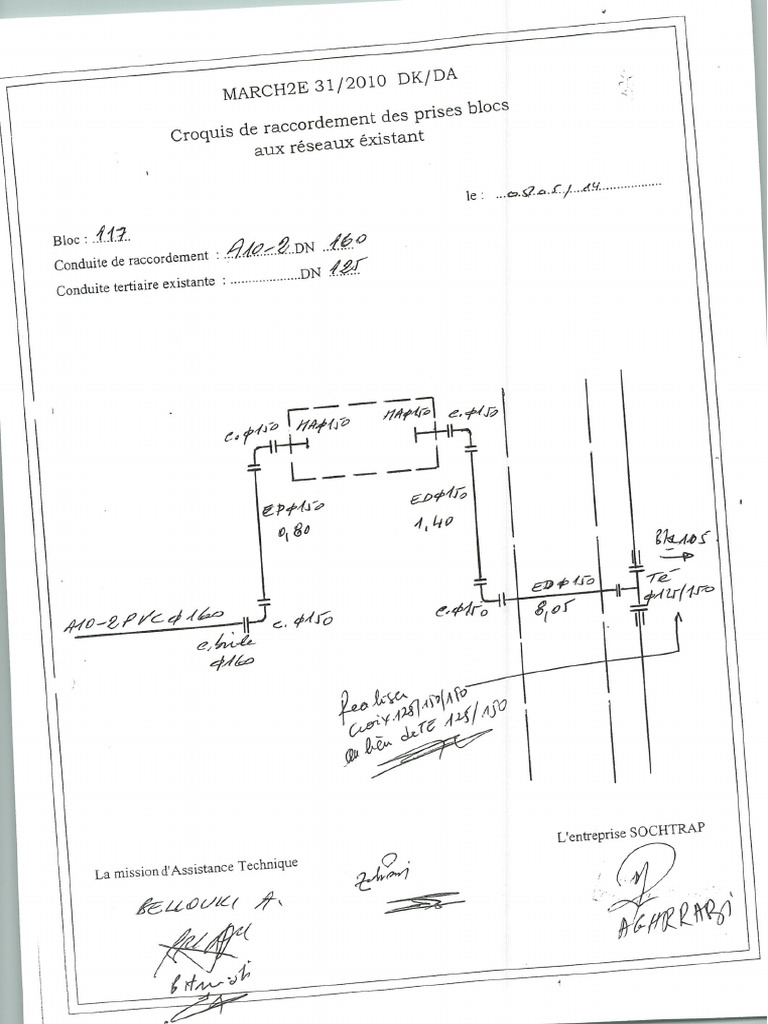 MARCH2E 31/2010 DK/DA
Croquis de raccordement des prises blocs
aux réseaux éxistant
le : 14
Bloc : 117
Conduite de raccordement : A10-2 DN 160
Conduite tertiaire existante : DN 125
c. φ150 MAφ150 MAφ150 c. φ150
EPφ150
0,80
EDφ150
1,40
A10-2 PVC φ160
c. φ150
φ160
c. φ150
EDφ150
8,05
105
Té
φ125/150
Realiser
Croix 125/150/150
au lieu de TE 125/150
La mission d'Assistance Technique
L'entreprise SOCHTRAP
BELLOUKI A.
AGHRRABI